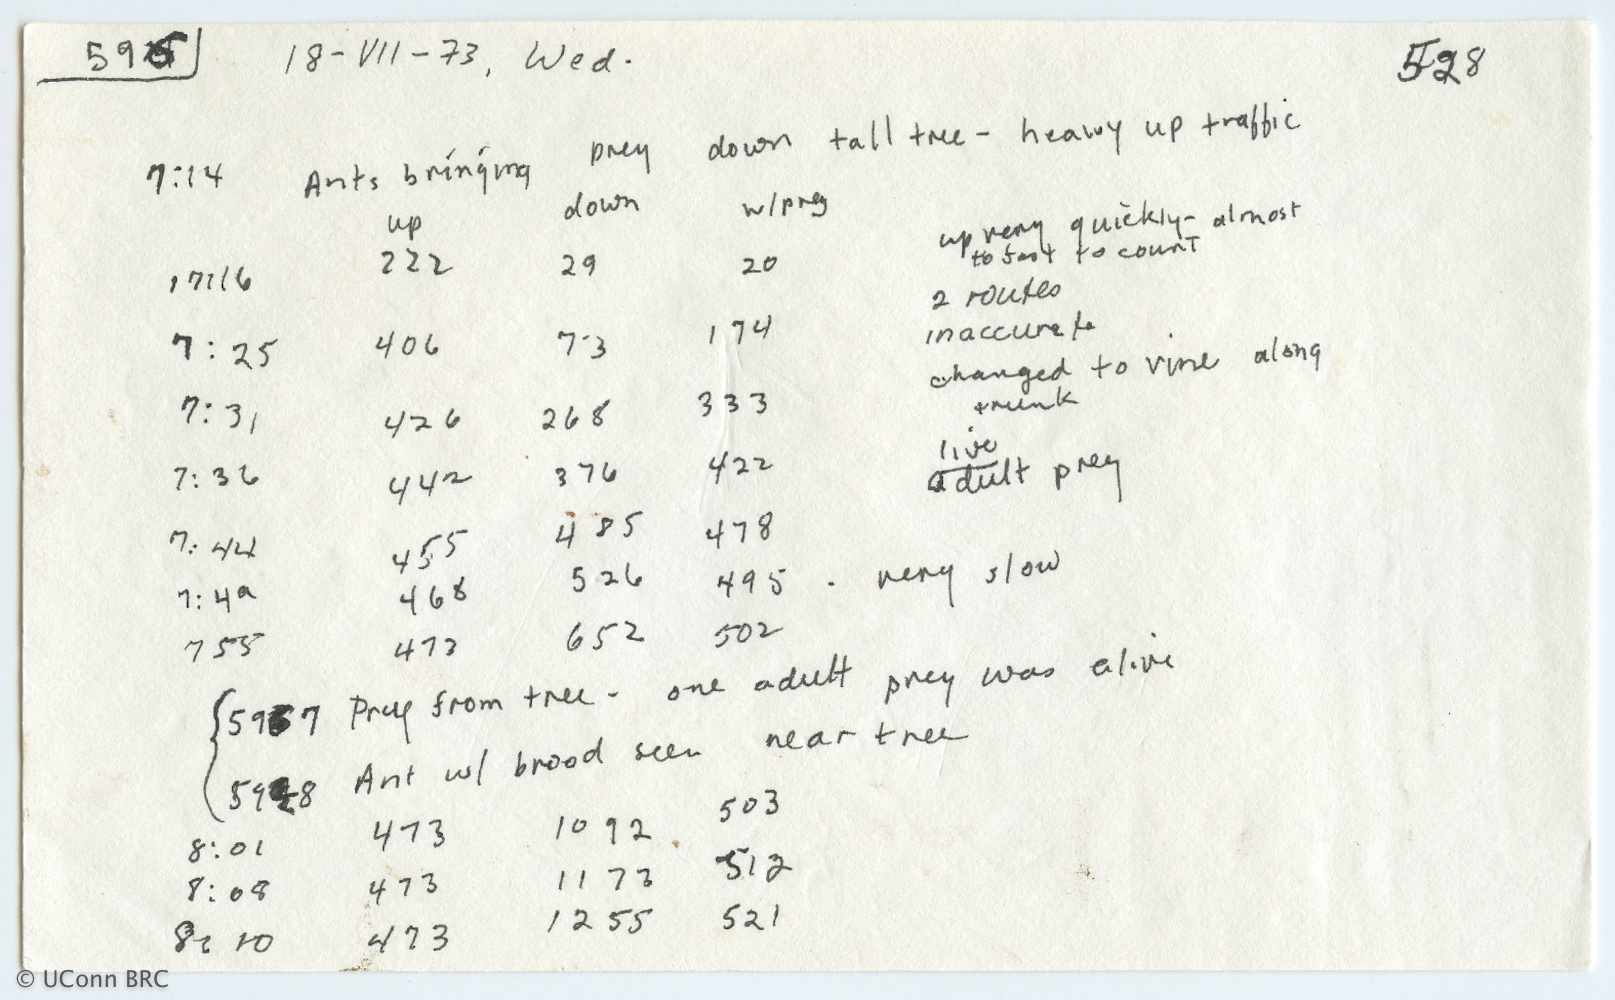 5965 18-VII-73, Wed. 528
7:14 Ants bringing prey down tall tree - heavy up traffic
up down w/prey
7:16 222 29 20 up very quickly - almost
to fast to count
2 routes
7:25 406 73 174 inaccurate
changed to vine along
trunk
7:31 426 268 333
7:36 442 376 422 live
adult prey
7:44 455 485 478
7:49 468 526 495 . very slow
755 473 652 502
Prey from tree - one adult prey was alive
Ant w/ brood seen near tree
8:01 473 1092 503
8:08 473 1173 512
8:10 473 1255 521
© UConn BRC